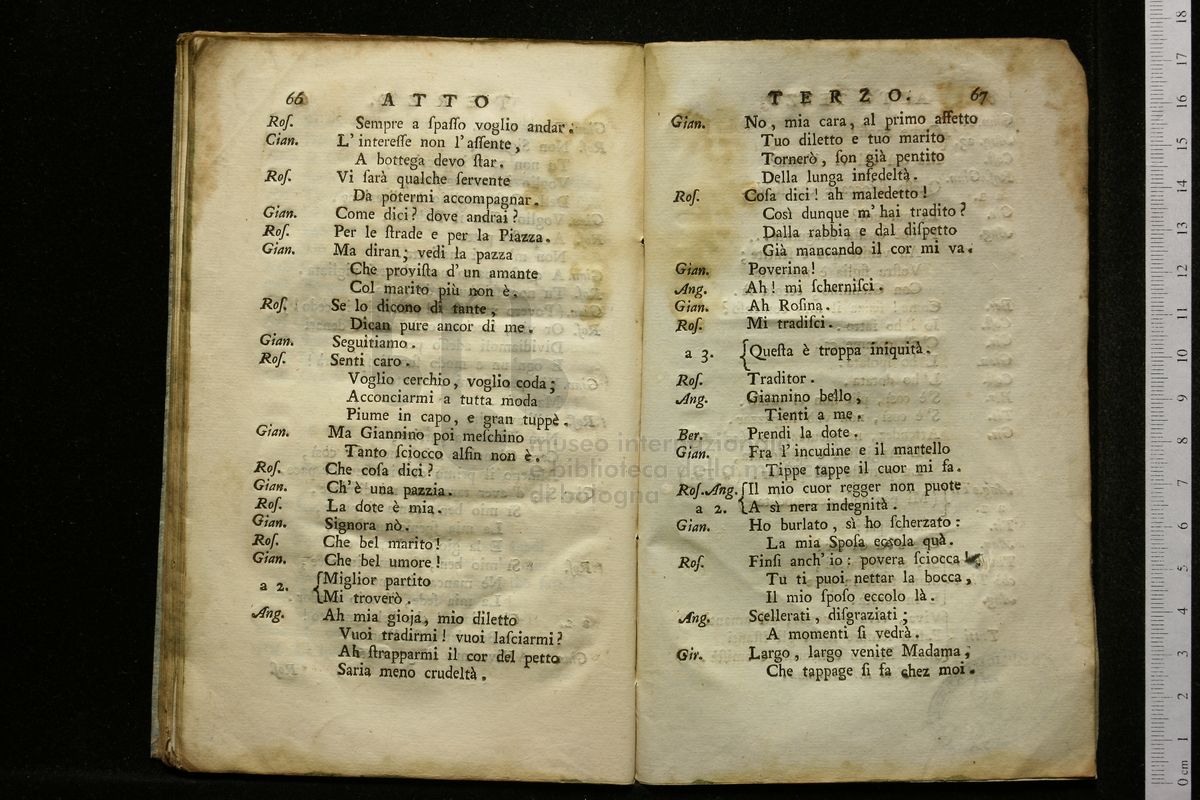 66 ATTO
Roſ. Sempre a ſpaſſo voglio andar.
Gian. L' intereſſe non l'aſſente,
A bottega devo ſtar.
Roſ. Vi ſarà qualche ſervente
Da potermi accompagnar.
Gian. Come dici? dove andrai?
Roſ. Per le ſtrade e per la Piazza.
Gian. Ma diran; vedi la pazza
Che proviſta d'un amante
Col marito più non è.
Roſ. Se lo dicono di tante,
Dican pure ancor di me.
Gian. Seguitiamo.
Roſ. Senti caro.
Voglio cerchio, voglio coda;
Acconciarmi a tutta moda
Piume in capo, e gran tuppè.
Gian. Ma Giannino poi meſchino
Tanto ſciocco alfin non è.
Roſ. Che coſa dici?
Gian. Ch'è una pazzia.
Roſ. La dote è mia.
Gian. Signora nò.
Roſ. Che bel marito!
Gian. Che bel umore!
a 2. {Miglior partito
Mi troverò.
Ang. Ah mia gioja, mio diletto
Vuoi tradirmi! vuoi laſciarmi?
Ah ſtrapparmi il cor del petto
Saria meno crudeltà.
TERZO. 67
Gian. No, mia cara, al primo affetto
Tuo diletto e tuo marito
Tornerò, ſon già pentito
Della lunga infedeltà.
Roſ. Coſa dici! ah maledetto!
Così dunque m'hai tradito?
Dalla rabbia e dal diſpetto
Già mancando il cor mi va.
Gian. Poverina!
Ang. Ah! mi ſcherniſci.
Gian. Ah Roſina.
Roſ. Mi tradiſci.
a 3. {Queſta è troppa iniquità.
Roſ. Traditor.
Ang. Giannino bello,
Tienti a me.
Ber. Prendi la dote.
Gian. Fra l'incudine e il martello
Tippe tappe il cuor mi fa.
Roſ. Ang. {Il mio cuor regger non puote
a 2. A sì nera indegnità.
Gian. Ho burlato, sì ho ſcherzato:
La mia Spoſa eccola quà.
Roſ. Finſi anch'io: povera ſciocca!
Tu ti puoi nettar la bocca,
Il mio ſpoſo eccolo là.
Ang. Scellerati, diſgraziati;
A momenti ſi vedrà.
Gir. Largo, largo venite Madama;
Che tappage ſi fa chez moi.